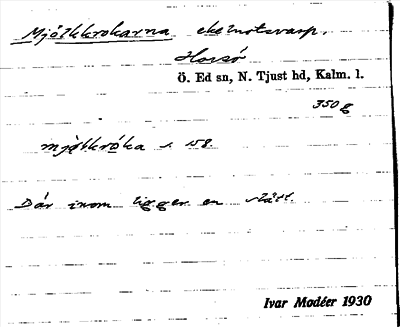 Mjölkkrokarna ekelnotsvarp.
Horsö
Ö. Ed sn, N. Tjust hd, Kalm. l.
350 g
mjölkkröka s. 158.
Där inom ligger en slätt.
Ivar Modéer 1930